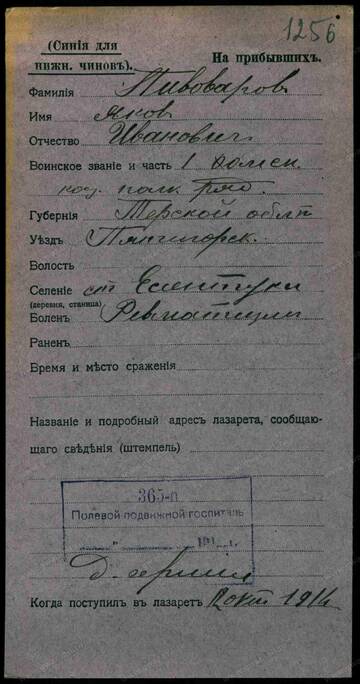 1256
(Синія для
нижн. чиновъ).
На прибывшихъ.
Фамилія Пивоваровъ
Имя Яковъ
Отчество Ивановичъ
Воинское званіе и часть 1
каз. полк. Ряд.
Губернія Терской обл
Уѣздъ Пятигорск.
Волость
Селеніе ст Есентуки
(деревня, станица)
Боленъ Ревматизм
Раненъ
Время и мѣсто сраженія
Названіе и подробный адресъ лазарета, сообщаю-
щаго свѣдѣнія (штемпель)
365-й
Полевой подвижной госпиталь
Когда поступилъ въ лазаретъ окт 1914